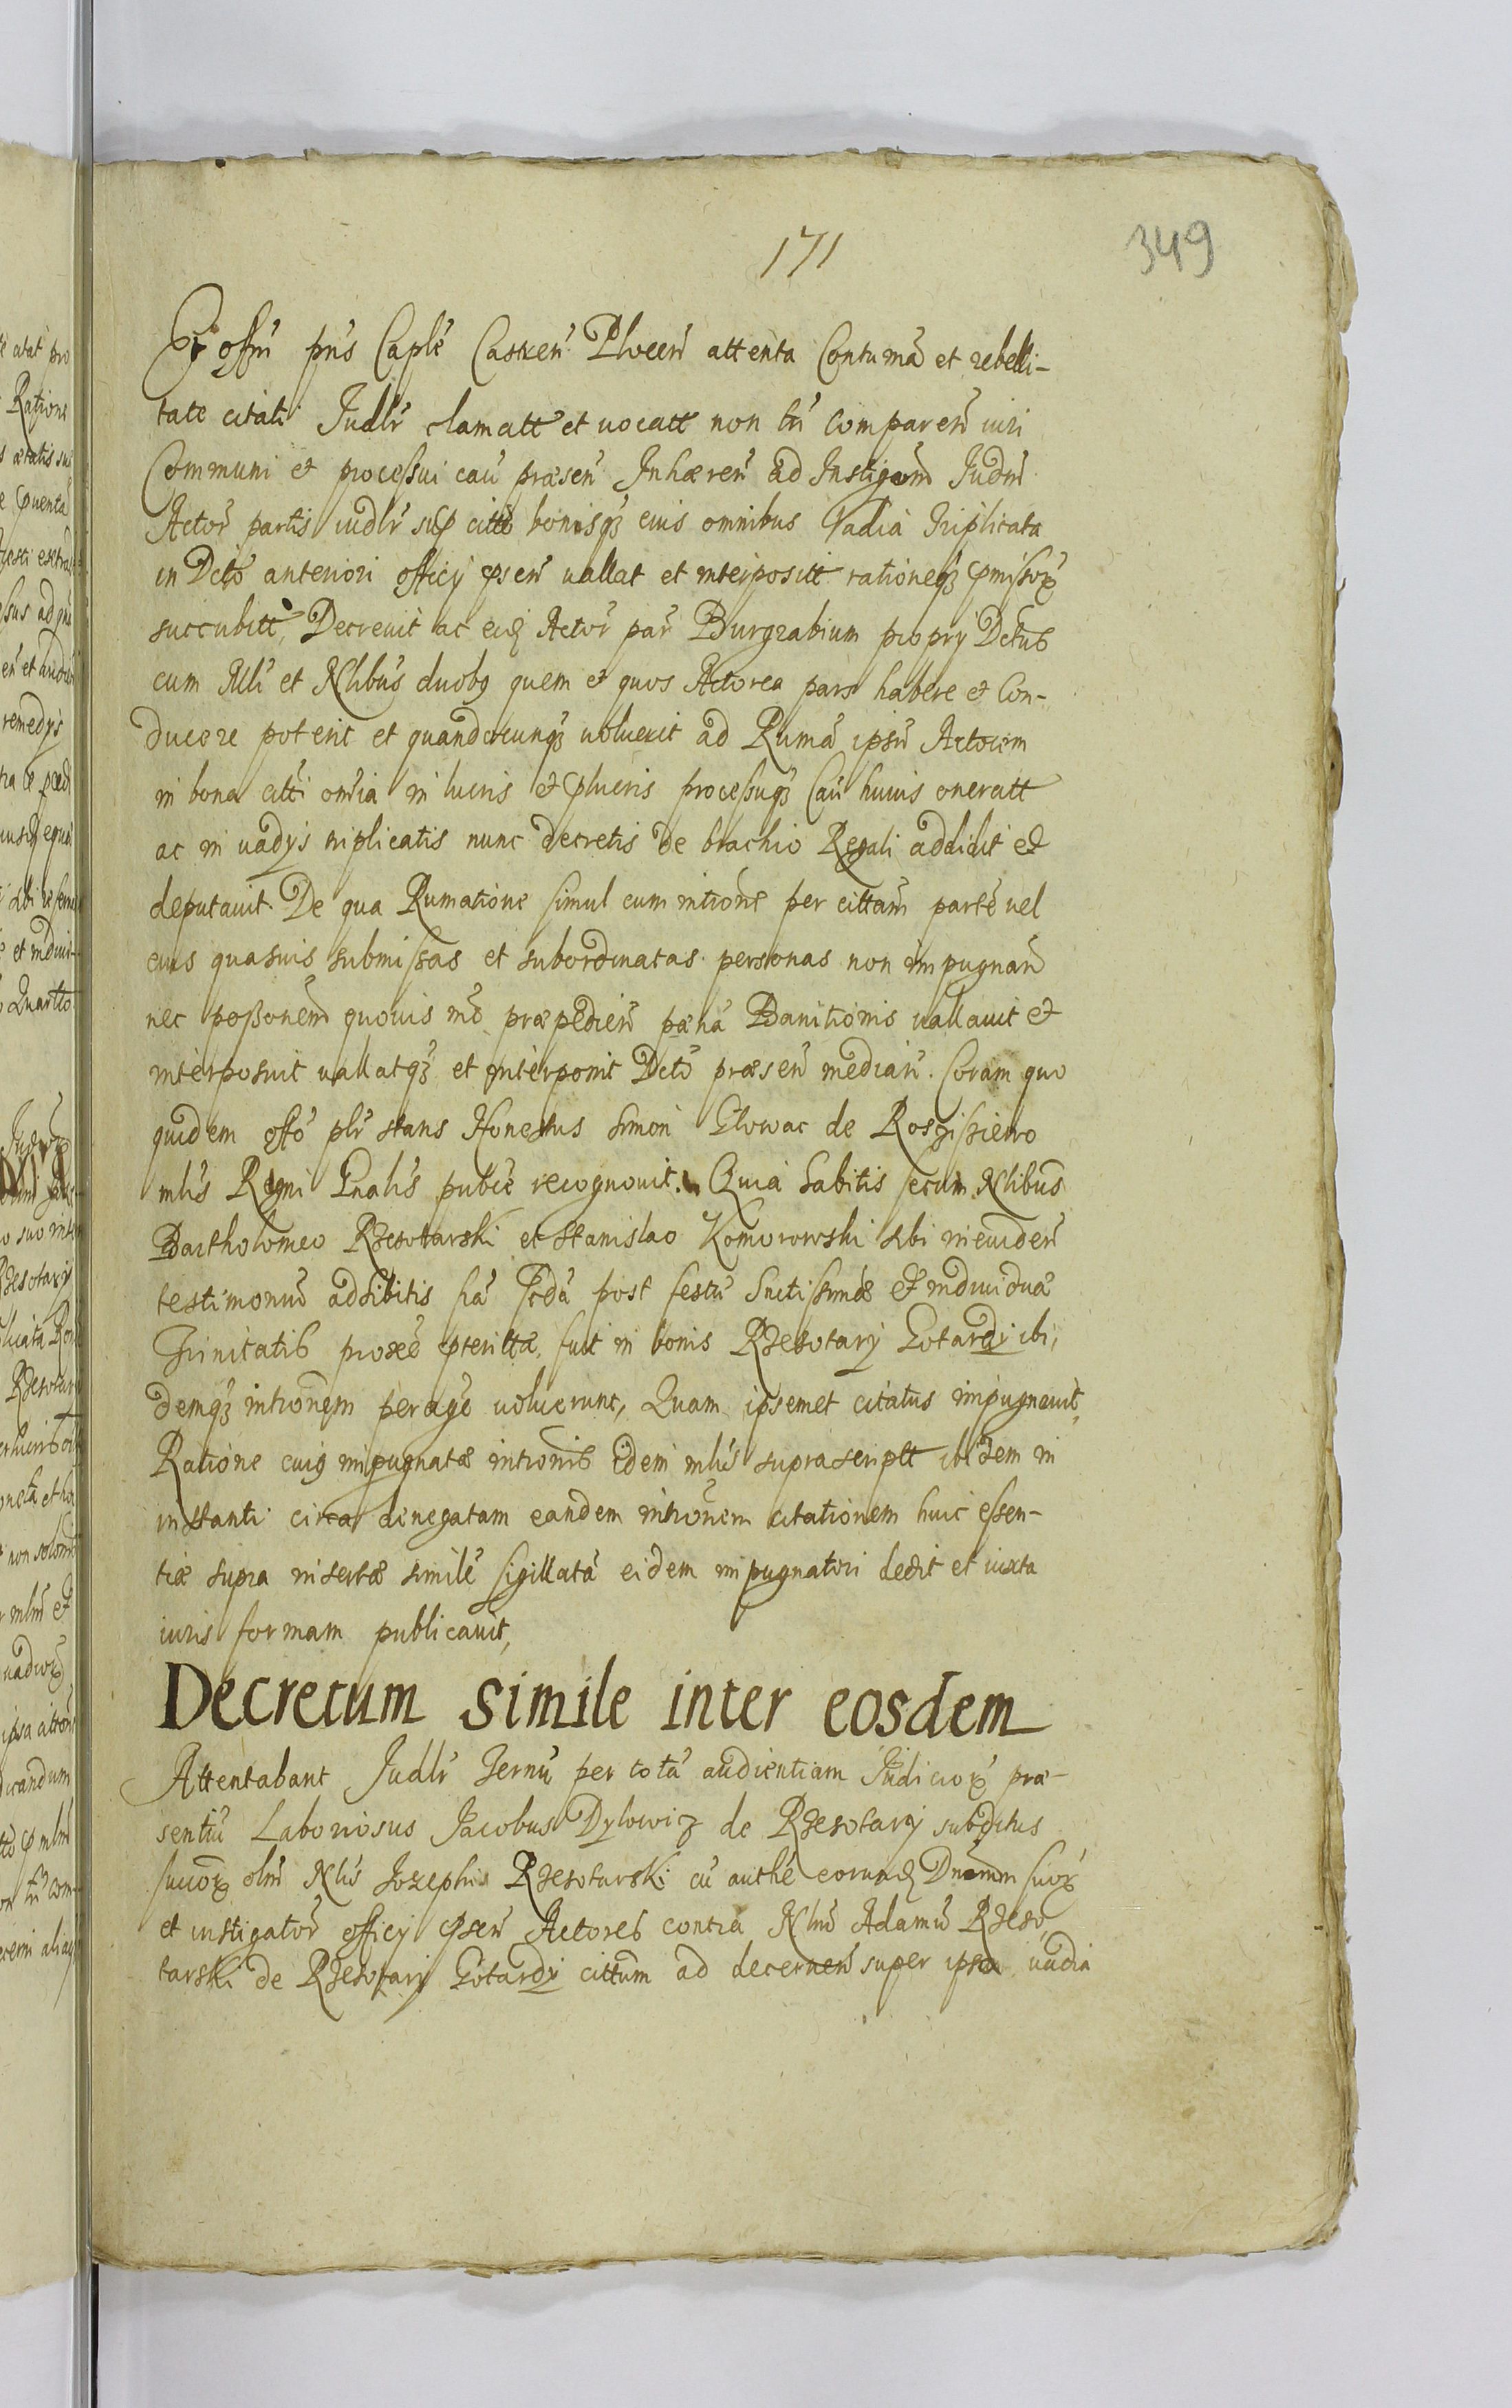 171
349
Et offm pns Caplē Castren Plocen attenta Contumā et rebelli-
tate citati Judlr clamatt et vocatt non tn comparen iuri
Communi et processui cau præsen Inhæren ad Instigaom Judm
Actor partis iudlr sup citto bonisqз eius omnibus Vadia Triplicata
in Dcto anteriori officÿ psen vallat et interpositt rationeqз pmissor
succubitt, Decrevit ac eid Actor par Burgrabium proprÿ Detus
cum Mli et Nlibus duobg quem et quos Actorea pars habere et Con-
ducere poterit et quandocunqз voluerit ad Rumā ipsū Actorem
in bona citti omia in lucris et plucris processuqз Cau huius oneratt
ac in vadÿs triplicatis nunc decretis de brachio Regali addidit et
deputavit. De qua Rumatione simul cum intrione per cittam partē vel
eius quasvis submissas et subordinatas personas non impugnan
nec possonem quovis mō præpedien pænā Banitionis vallavit et
interposuit vallatqз et interponit Dcto præsen median. Coram quo
quidem offo plr stans Honestus Simon Glowac de Roszissiewo
mlis Regni Gnalis publce recognovit. Quia habitis secum Nlibus
Bartholomeo Rzeszotarski et Stanislao Komorowski sibi in eviden
testimonium adhibitis fia scda post festū Snctissimæ et individuæ
Trinitatis proxe pteritta fuit in bonis Rzeszotarÿ Gotardÿ ibi,
demqз intrionem peragē voluerunt, Quam ipsemet citatus impugnavit,
Ratione cuig impugnatæ intrionis Idem mlis suprascriptt ibidem in
instanti circa denegatam eandem intrionem citationem huic essen-
tiæ supra insertæ similē sigillatā eidem impugnatori dedit et iuxta
iuris formam publicavit,
Decretum simile inter eosdem
Attentabant Judlr Ternū per totā audientiam Judicior præ-
sentiū Laboriosus Jacobus Dylowicz de Rzeszotarÿ subditus
succor olm Nlis Jozephi Rzeszotarski cū authē eorund Dnorum suor
et instigator officÿ psen Actores contra Nlm Adamū Rzeszo,
tarski de Rzeszotarÿ Gotardÿ cittum ad decernen super ipso vadia